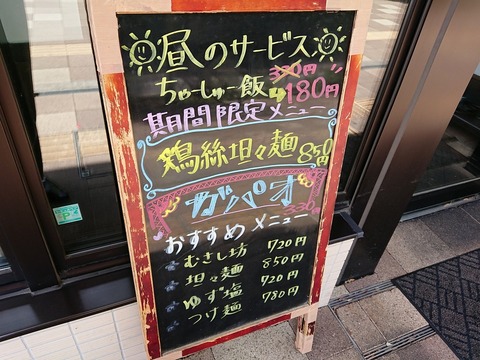 昼のサービス
ちゅーしゅー飯 330円
180円
期間限定メニュー
鶏絲坦々麺 850円
ガパオ
330円
おすすめ メニュー
むさし坊 720円
坦々麺 850円
ゆず塩 720円
つけ麺 780円